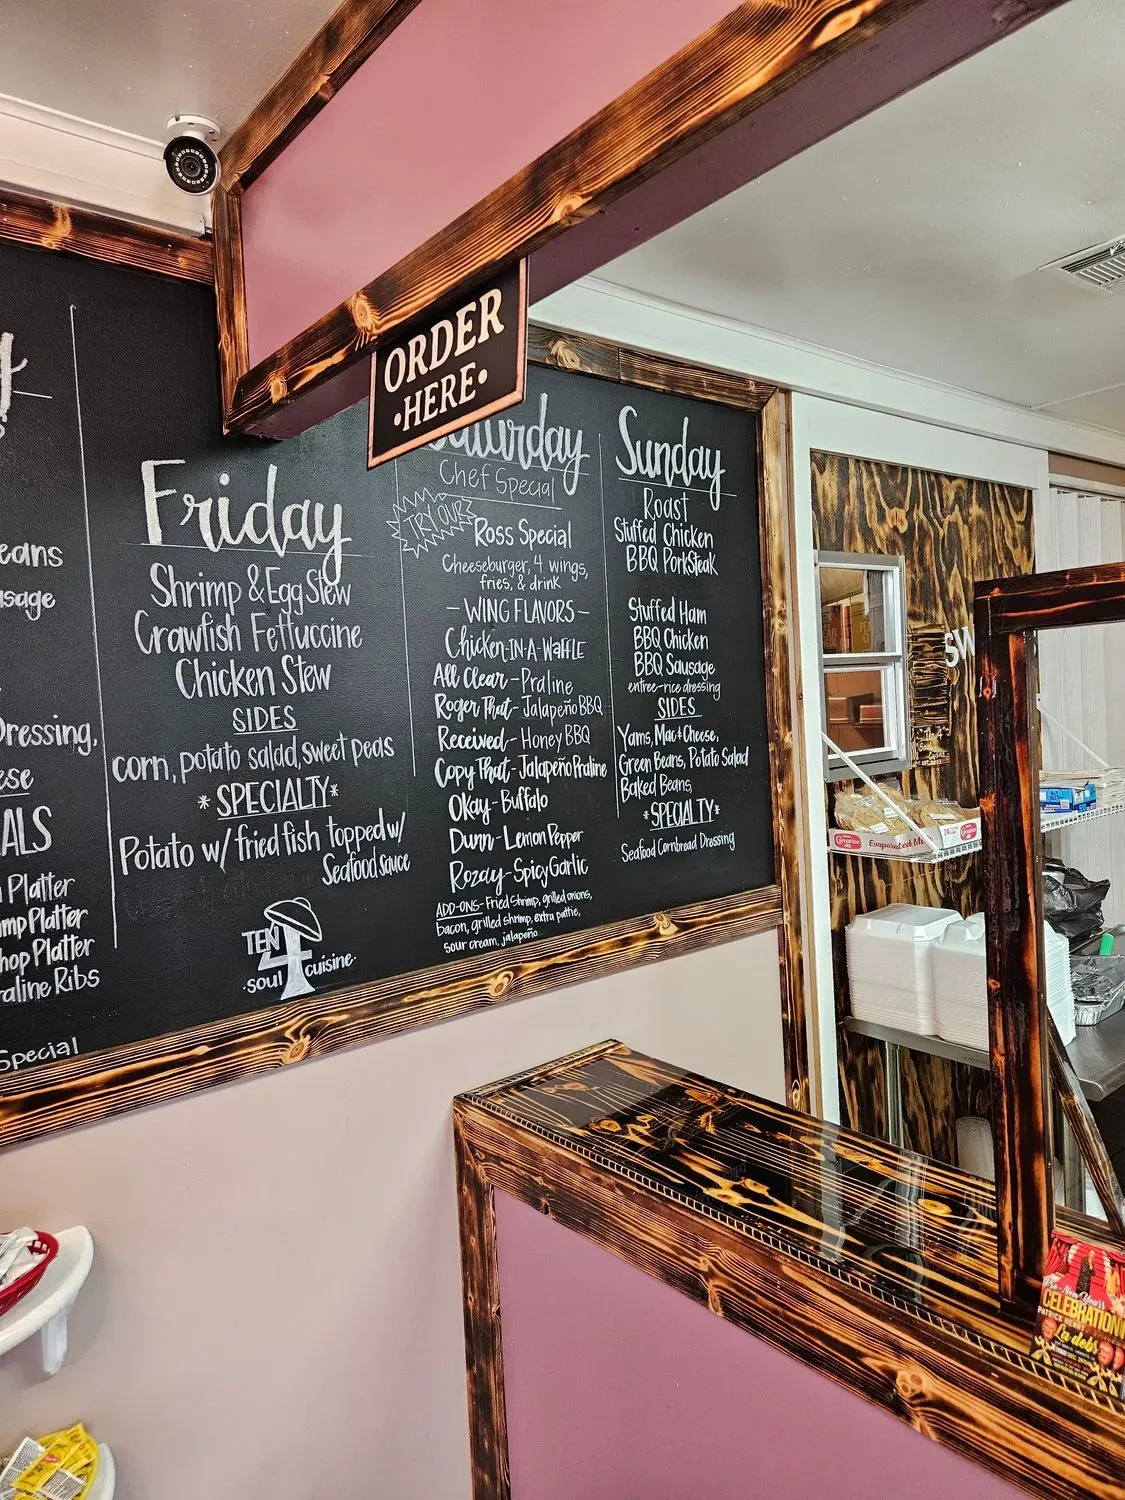 ORDER
•HERE•
eans
usage
Dressing,
ese
ALS
Platter
mp Platter
hop Platter
raline Ribs
Special
Friday
Shrimp & Egg Stew
Crawfish Fettuccine
Chicken Stew
SIDES
corn, potato salad, sweet peas
*SPECIALTY*
Potato w/ fried fish topped w/
Seafood sauce
TEN
4
•soul cuisine•
Saturday
Chef Special
TRY OUR
Ross Special
Cheeseburger, 4 wings,
fries, & drink
-WING FLAVORS-
Chicken-IN-A-Waffle
All Clear - Praline
Roger That - Jalapeño BBQ
Received - Honey BBQ
Copy That - Jalapeño Praline
Okay - Buffalo
Dunn - Lemon Pepper
Rozay - Spicy Garlic
ADD-ONS - Fried shrimp, grilled onions,
bacon, grilled shrimp, extra pattie,
sour cream, jalapeño
Sunday
Roast
Stuffed Chicken
BBQ PorkSteak
Stuffed Ham
BBQ Chicken
BBQ Sausage
entree-rice dressing
SIDES
Yams, Mac & Cheese,
Green Beans, Potato Salad
Baked Beans
*SPECIALTY*
Seafood Cornbread Dressing
SW
Carnation
Evaporated Mi
Pre-New Years
CELEBRATION
La debs